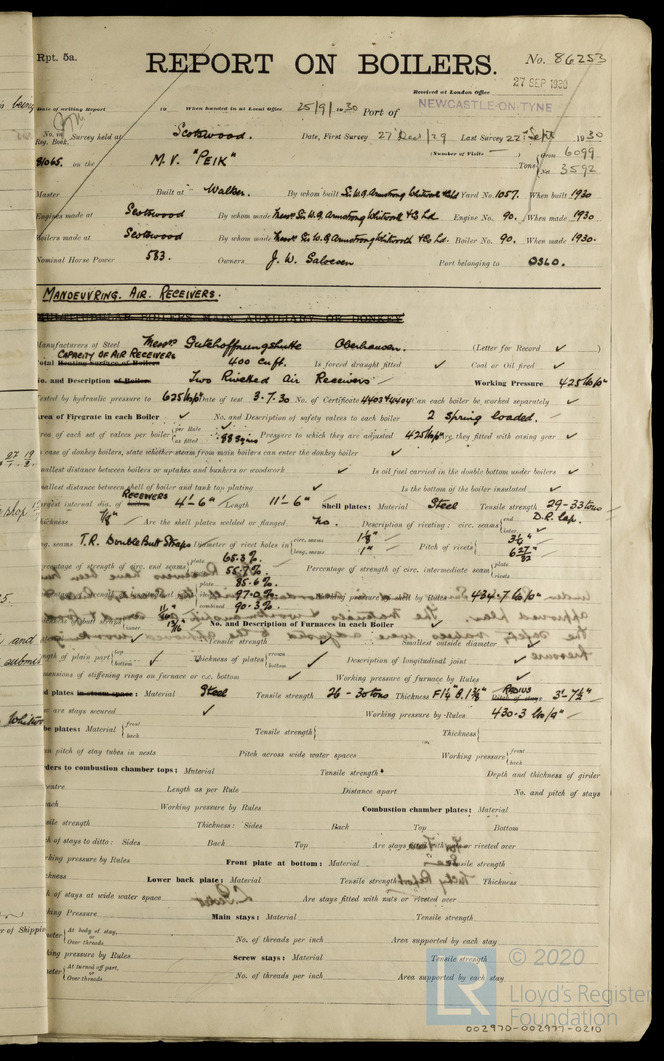 Rpt. 5a.
REPORT ON BOILERS.
No. 86253
Received at London Office
27 SEP 1930
Date of writing Report
When handed in at Local Office 25/9/1930 Port of NEWCASTLE-ON-TYNE
No. in Reg. Book. Survey held at Scotswood. Date, First Survey 27 Dec/29 Last Survey 22nd Sept 1930
81065. on the M.V. "PEIK" (Number of Visits — ) Tons { Gross 6099 Net 3592
Master Built at Walker. By whom built Sir W.G. Armstrong Whitworth & Co Ld Yard No. 1057. When built 1930
Engines made at Scotswood By whom made Messrs Sir W.G. Armstrong Whitworth & Co Ld. Engine No. 90. When made 1930
Boilers made at Scotswood By whom made Messrs Sir W.G. Armstrong Whitworth & Co Ld. Boiler No. 90. When made 1930.
Nominal Horse Power 583. Owners J. W. Salvesen Port belonging to OSLO.
MANOEUVRING. AIR RECEIVERS.
MULTITUBULAR BOILERS MAIN, AUXILIARY OR DONKEY
Manufacturers of Steel Messrs Gutehoffnungshutte Oberhausen. (Letter for Record ✓ )
CAPACITY OF AIR RECEIVERS
Total Heating Surface of Boilers 400 cu ft. Is forced draught fitted ✓ Coal or Oil fired ✓
No. and Description of Boilers Two Riveted Air Receivers Working Pressure 425 lb/□"
Tested by hydraulic pressure to 625 lb/□" Date of test 3.7.30 No. of Certificate 4403 & 4404 Can each boiler be worked separately ✓
Area of Firegrate in each Boiler ✓ No. and Description of safety valves to each boiler 2 spring loaded.
Area of each set of valves per boiler { per Rule ✓ as fitted Pressure to which they are adjusted 425 lb/□" Are they fitted with easing gear ✓
In case of donkey boilers, state whether steam from main boilers can enter the donkey boiler ✓
Smallest distance between boilers or uptakes and bunkers or woodwork ✓ Is oil fuel carried in the double bottom under boilers ✓
Smallest distance between shell of boiler and tank top plating ✓ Is the bottom of the boiler insulated ✓
Largest internal dia. of RECEIVERS 4'-6" Length 11'-6" Shell plates: Material Steel Tensile strength 29-33 tons
Thickness 7/8" Are the shell plates welded or flanged No. Description of riveting: circ. seams { end D.R. lap. inter. ✓
long. seams T.R. Double Butt Straps Diameter of rivet holes in { circ. seams 1 1/8" long. seams 1" Pitch of rivets { 3 1/2" 6 27/32
Percentage of strength of circ. end seams { plate 65.3% rivets 55.7% Percentage of strength of circ. intermediate seam { plate rivets
plate 85.6%
97.0% Working pressure of shell by Rules 434.7 lb/□"
combined 90.3%
11/16 13/16 No. and Description of Furnaces in each Boiler ✓
Tensile strength ✓ Smallest outside diameter ✓
Length of plain part { top bottom ✓ Thickness of plates { crown bottom ✓ Description of longitudinal joint ✓
Dimensions of stiffening rings on furnace or c.c. bottom ✓ Working pressure of furnace by Rules ✓
End plates in steam space: Material Steel Tensile strength 26-30 tons Thickness F 1 1/4" B. 1 3/8" RADIUS Pitch of stays 3'-7 1/2"
How are stays secured ✓ Working pressure by Rules 430.3 lb/□"
Tube plates: Material { front back Tensile strength { Thickness {
Mean pitch of stay tubes in nests Pitch across wide water spaces Working pressure { front back
Girders to combustion chamber tops: Material Tensile strength Depth and thickness of girder
centre Length as per Rule Distance apart No. and pitch of stays
each Working pressure by Rules Combustion chamber plates: Material
Tensile strength Thickness: Sides Back Top Bottom
Pitch of stays to ditto: Sides Back Top Are stays fitted with nuts or riveted over
Working pressure by Rules Front plate at bottom: Material Tensile strength
Thickness Lower back plate: Material Tensile strength Thickness
Pitch of stays at wide water space Are stays fitted with nuts or riveted over
Working Pressure Main stays: Material Tensile strength
Diameter { At body of stay, or Over threads No. of threads per inch Area supported by each stay
Working pressure by Rules Screw stays: Material Tensile strength
Diameter { At turned off part, or Over threads No. of threads per inch Area supported by each stay
© 2020
LR Lloyd's Register Foundation
002970-002977-0210